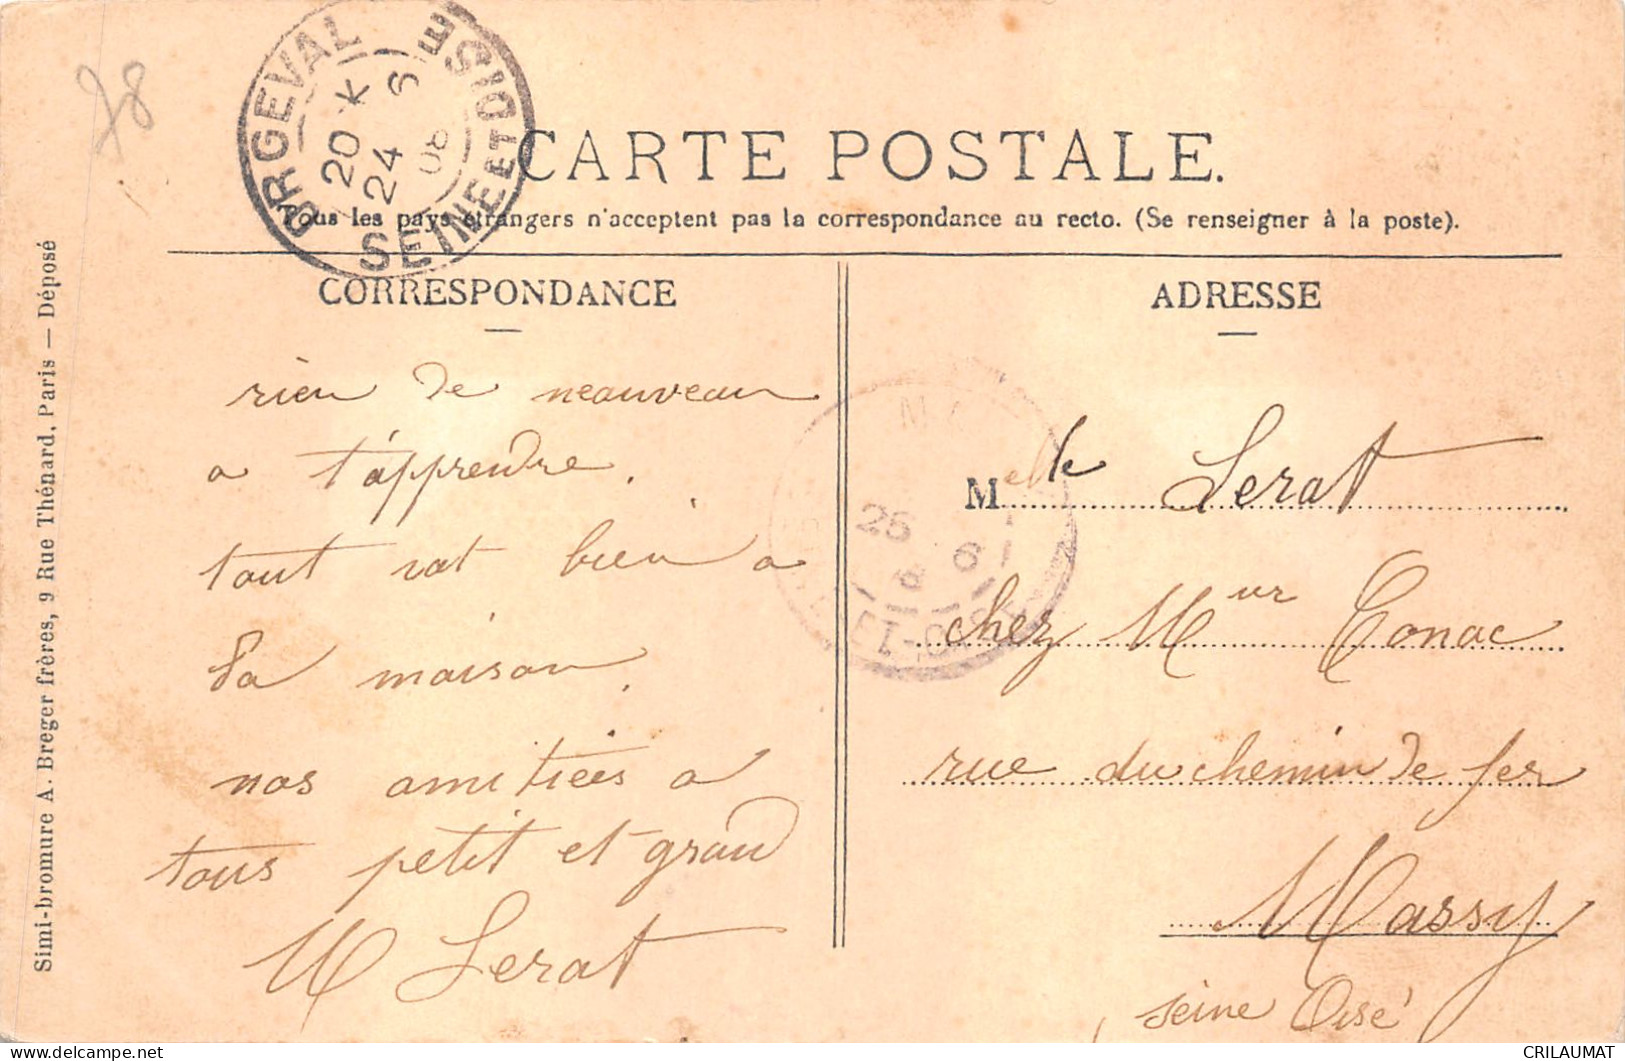 78
ORGEVAL
SEINE ET OISE
20 K
24 6
08
CARTE POSTALE.
Tous les pays étrangers n'acceptent pas la correspondance au recto. (Se renseigner à la poste).
CORRESPONDANCE
rien de neauveau
a t'apprendre.
tout vat bien a
la maison.
nos amitiées a
tous petit et grand
M Serat
ADRESSE
Melle Serat
chez Mur Conac
rue du chemin de fer
Massy
seine Oisé
25 6
Simi-bromure A. Breger frères, 9 Rue Thénard, Paris — Déposé
CRILAUMAT